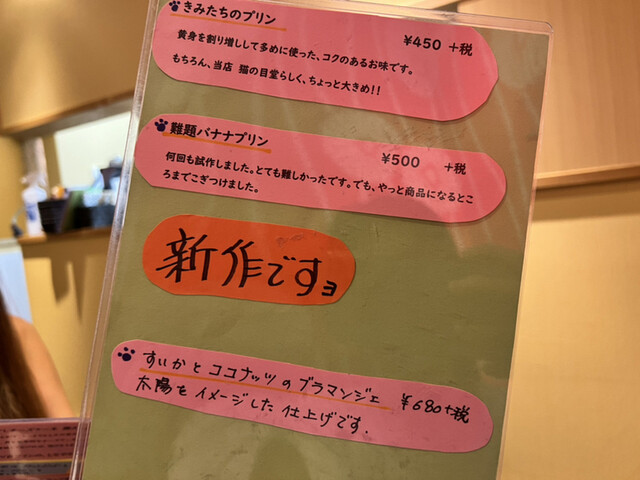 きみたちのプリン ¥450 +税
黄身を割り増しして多めに使った、コクのあるお味です。
もちろん、当店 猫の目堂らしく、ちょっと大きめ!!
難題バナナプリン ¥500 +税
何回も試作しました。とても難しかったです。でも、やっと商品になるとこ
ろまでこぎつけました。
新作ですョ
すいかとココナッツのブラマンジェ ¥680+税
太陽をイメージした仕上げです.